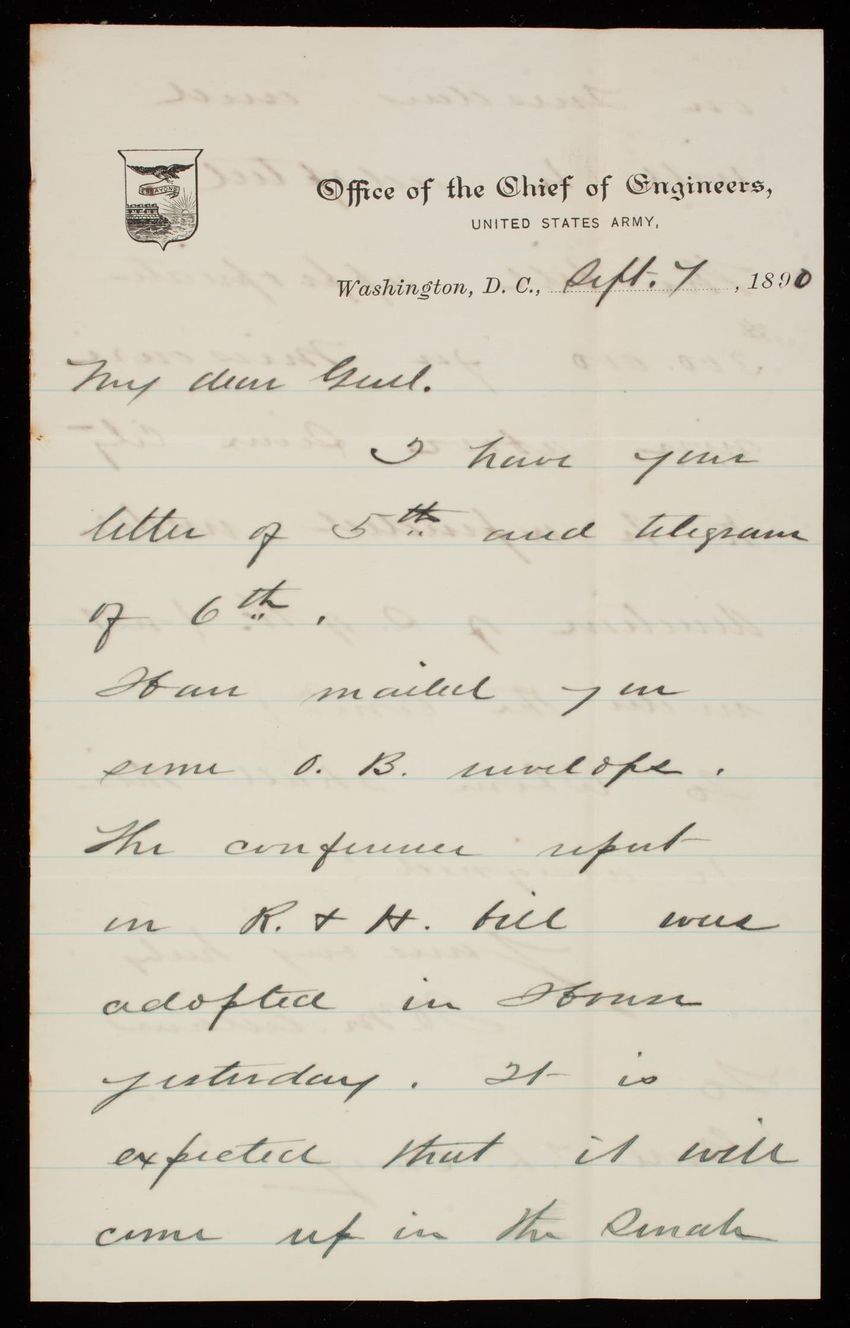 ESSAYONS
Office of the Chief of Engineers,
UNITED STATES ARMY,
Washington, D. C., Sept. 7, 1890
My dear Genl.
I have your
letter of 5th and telegram
of 6th.
Have mailed you
some O. B. envelops.
The conference report
on R. & H. bill was
adopted in House
yesterday. It is
expected that it will
come up in the Senate